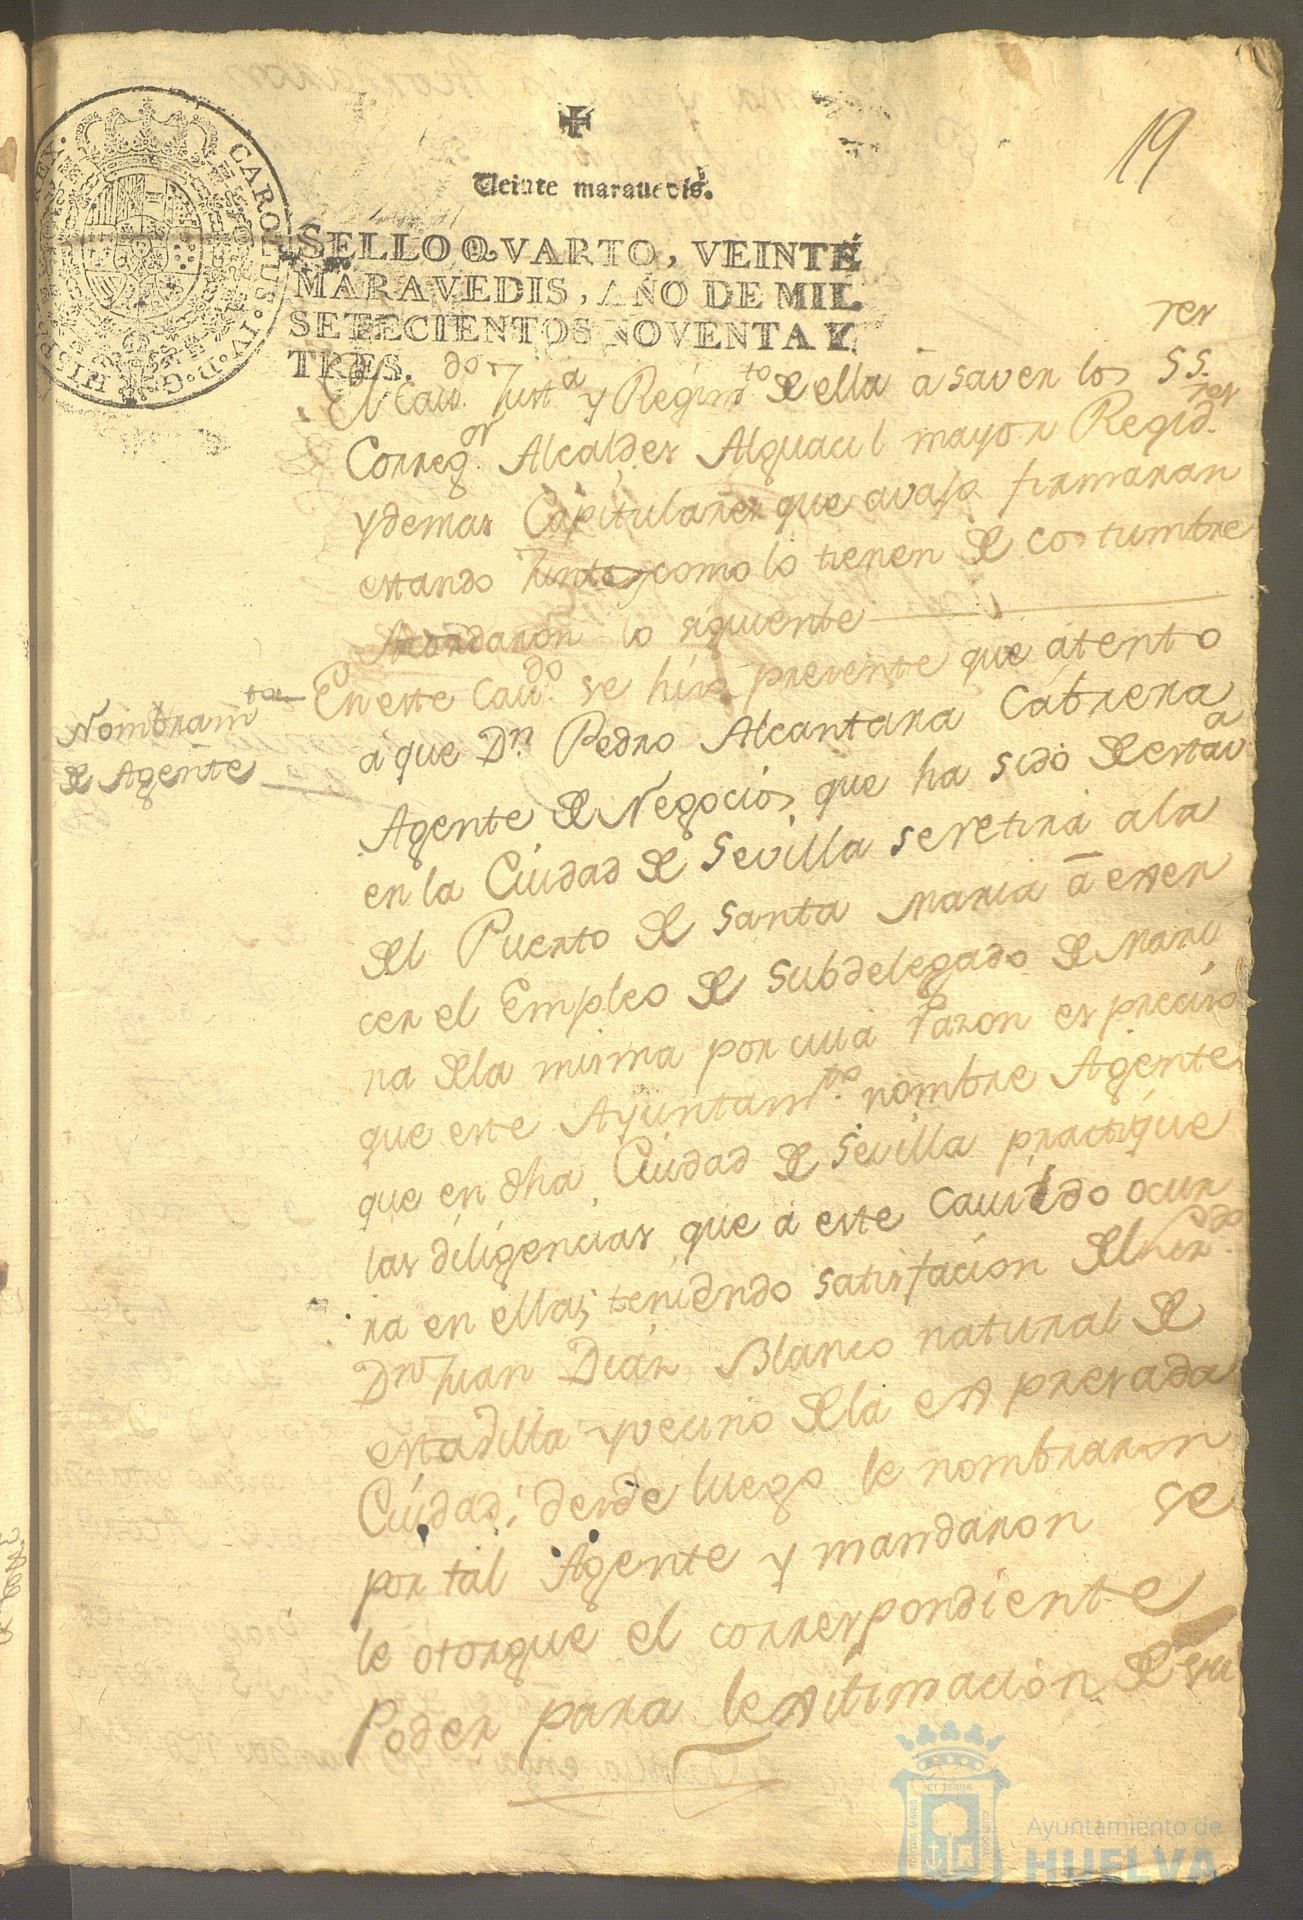 19
Veinte marauedis.
SELLO QVARTO, VEINTE
MARAVEDIS, AÑO DE MIL
SETECIENTOS NOVENTA Y
TRES.
CAROLUS. IV. D. G. HISP. REX.
El Cavdo. Justa y Regimto de ella a saver los SSres
Corregor. Alcaldes Alguacil mayor Regidres.
y demas Capitulares que avajo firmaran
estando Juntos como lo tienen de costumbre
Acordaron lo siguiente
Nombramto
de Agente
En este Cavdo. se hizo presente que atento
a que Dn. Pedro Alcantara Cabrera
Agente de Negocios que ha sido de esta va
en la Ciudad de Sevilla se retira a la
del Puerto de Santa Maria a exer
cer el Empleo de Subdelegado de Mari
na de la misma por cuia razon es preciso
que este Ayuntamto. nombre Agente
que en dha Ciudad de Sevilla practique
las diligencias que a este Cavildo ocur
ra en ellas; teniendo satisfacion del
Dn Juan Diaz Blanco natural de
esta villa y vecino de la expresada
Ciudad; desde luego le nombraron
por tal Agente y mandaron se
le otorgue el correspondiente
Poder para lexitimacion de su
Ayuntamiento de
HUELVA